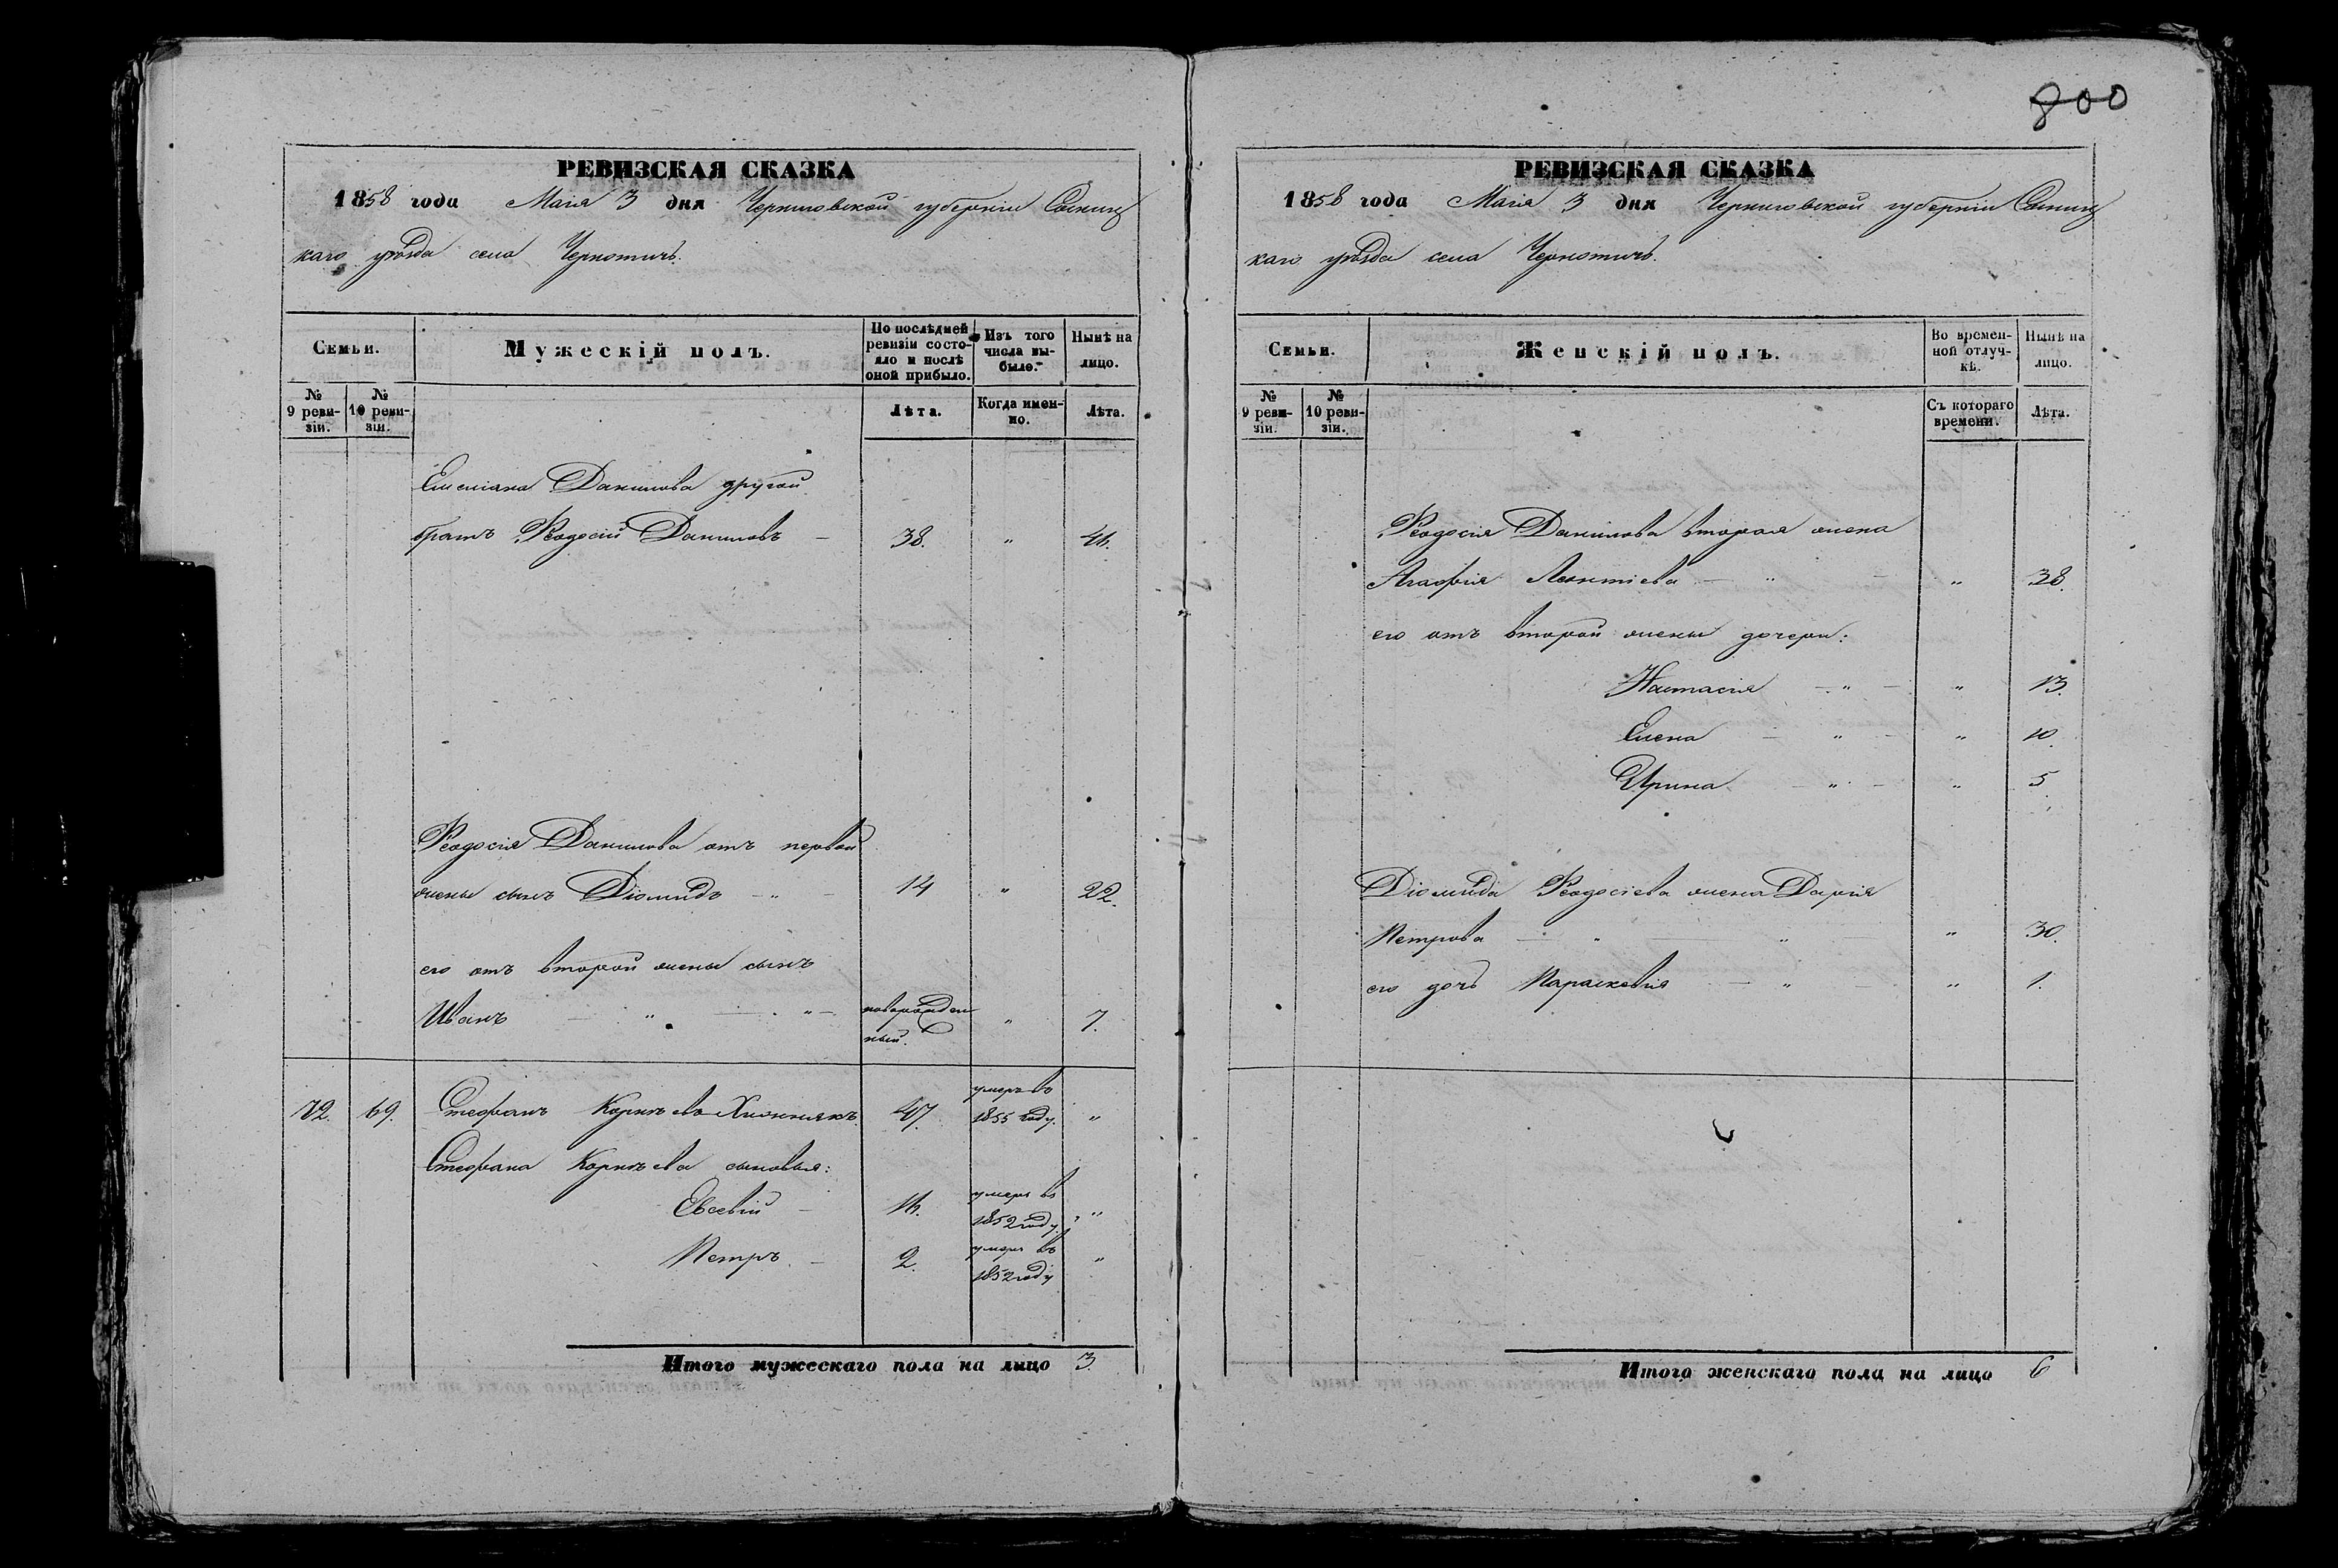 РЕВИЗСКАЯ СКАЗКА
1858 года Маія 3 дня Черниговской губерніи Сосниц
каго уѣзда села Чернотичъ.
Семьи.
Мужескій полъ.
По послѣдней ревизіи состояло и послѣ оной прибыло.
Изъ того числа выбыло.
Нынѣ на лицо.
№ 9 ревизіи.
№ 10 ревизіи.
Лѣта.
Когда именно.
Лѣта.
Емеліана Данилова другой
братъ Ѳеодосій Даниловъ — 38. " 46.
Ѳеодосія Данилова отъ первой
жены сынъ Діомидъ — " — 14 " 22.
его отъ второй жены сынъ
Иванъ — " — " — новорожден
ный. " 7.
умеръ въ
72. 69. Стефанъ Корнѣевъ Хижнякъ. 47. 1855 году. "
Стефана Корнѣева сыновья:
Евсевій — 16. умеръ въ
1852 году. "
Петръ. — 2. умеръ въ
1852 году "
Итого мужескаго пола на лицо 3.
800
РЕВИЗСКАЯ СКАЗКА
1858 года Маія 3 дня Черниговской губерніи Сосниц
каго уѣзда села Чернотичъ.
Семьи.
Женскій полъ.
Во временной отлучкѣ.
Нынѣ на лицо.
№ 9 ревизіи.
№ 10 ревизіи.
Съ котораго времени.
Лѣта.
Ѳеодосія Данилова вторая жена
Агафія Леонтіева — " — " 38.
его отъ второй жены дочери:
Настасія — " — " 13.
Елена — " — " 10.
Ирина — " — " 5.
Діомида Ѳеодосіева жена Дарія
Петрова — " — " " 30.
его дочь Параскевія — " — " 1.
Итого женскаго пола на лицо 6